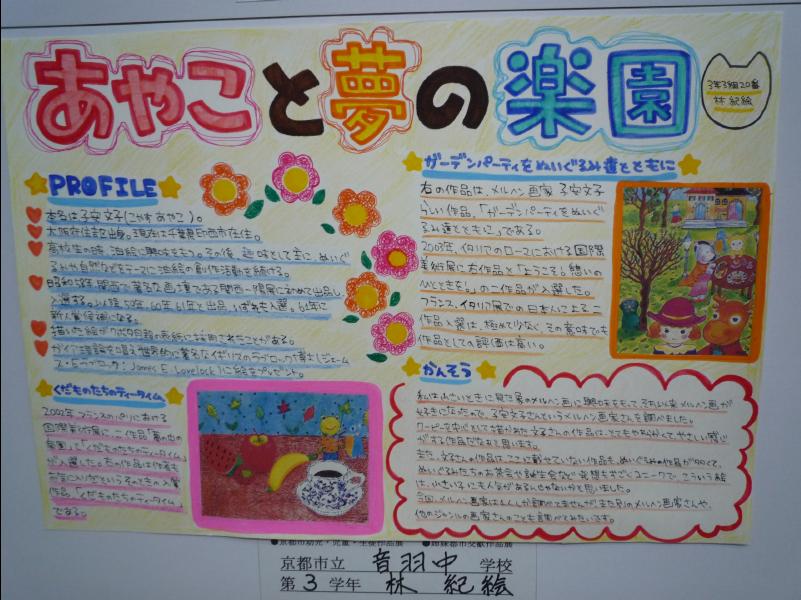 あやこと夢の楽園
3年3組20番
林 紀絵
PROFILE
本名は子安文子(こやす あやこ)。
大阪府住吉区出身。現在は千葉県印西市在住。
高校生の時、油絵に興味をもつ。その後、趣味として主に、ぬいぐ
るみや自然などをテーマに油絵の創作活動を続ける。
昭和58年、関西で著名な画壇である関西一陽展に初めて出品し、
入選する。以降59年、60年、61年と出品、いずれも入選。61年に
新人賞候補になる。
描いた絵がクボタ日報の表紙に採用されたことがある。
ガイア理論を唱え世界的に著名なイギリスのラブロック博士(ジェーム
ス・E・ラブロック:James E. Lovelock)に絵をプレゼント。
くだものたちのティータイム
2002年フランスのパリにおける
国際美術展に、二作品「夢の中の
楽園」と「くだものたちのティータイム」
が入選した。右の作品は作者も
お気に入りだという
作品「くだものたちのティータイム」
である。
ガーデンパーティをぬいぐるみ達とともに
右の作品は、メルヘン画家 子安文子
らしい作品、「ガーデンパーティをぬいぐ
るみ達とともに」である。
2003年、イタリアのローマにおける国際
美術展に右作品と「ようこそ。憩いの
ひとときを」の二作品が入選した。
フランス、イタリア展での日本人による二
作品入選は、極めて少なく、その意味でも
作品としての評価は高い。
かんそう
私は小さいときに見た展のメルヘン画に興味をもって、それ以来メルヘン画が
好きになったので、子安文子さんというメルヘン画家さんを調べました。
を中心として描かれた文子さんの作品は、とてもやわらかくてやさしい感じ
がする作品だなぁと思います。
また、文子さんの作品は、ここに載せていない作品も、ぬいぐるみの作品が多くて、
ぬいぐるみたちのお茶会や誕生会など発想もすごくユニークで、こういう絵
は、小さい子にも人気があるんじゃないかと思いました。
今回、メルヘン画家は1人しか調べてませんが、また別のメルヘン画家さんや、
他のジャンルの画家さんのことも調べてみたいです。
京都市立 音羽中 学校
第3学年 林 紀絵